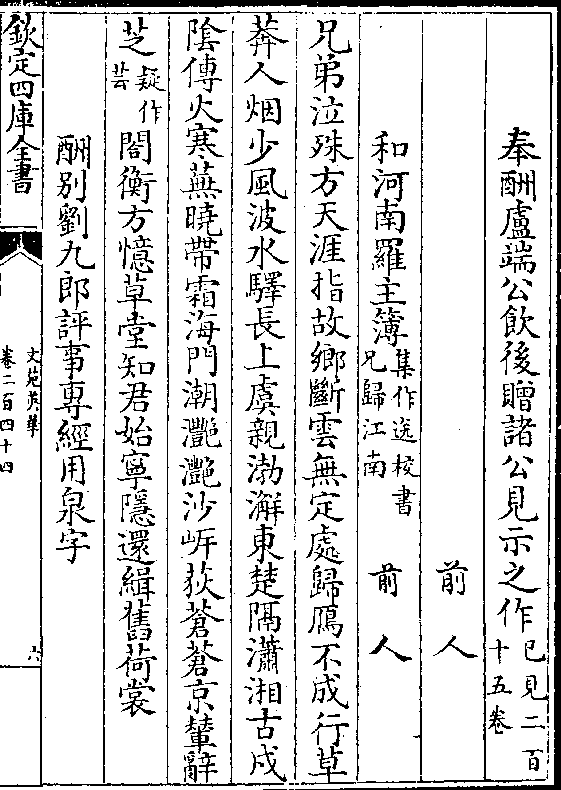 奉酬盧端公飲後贈諸公見示之作已見二百十五卷
前人
和河南羅主簿集作送校書兄歸江南 前人
兄弟泣殊方天涯指故鄉斷雲無定處歸鴈不成行草
莽人烟少風波水驛長上虞親渤澥東楚隔瀟湘古戍
陰傳火寒蕪曉帶霜海門潮灔灔沙岍荻蒼蒼京輦辭
芝疑作芸閤衡方憶草堂知君始寧隱還緝舊荷裳
酬别劉九郎評事專經用泉字
欽定四庫全書
文苑英華
卷二百四十四
六